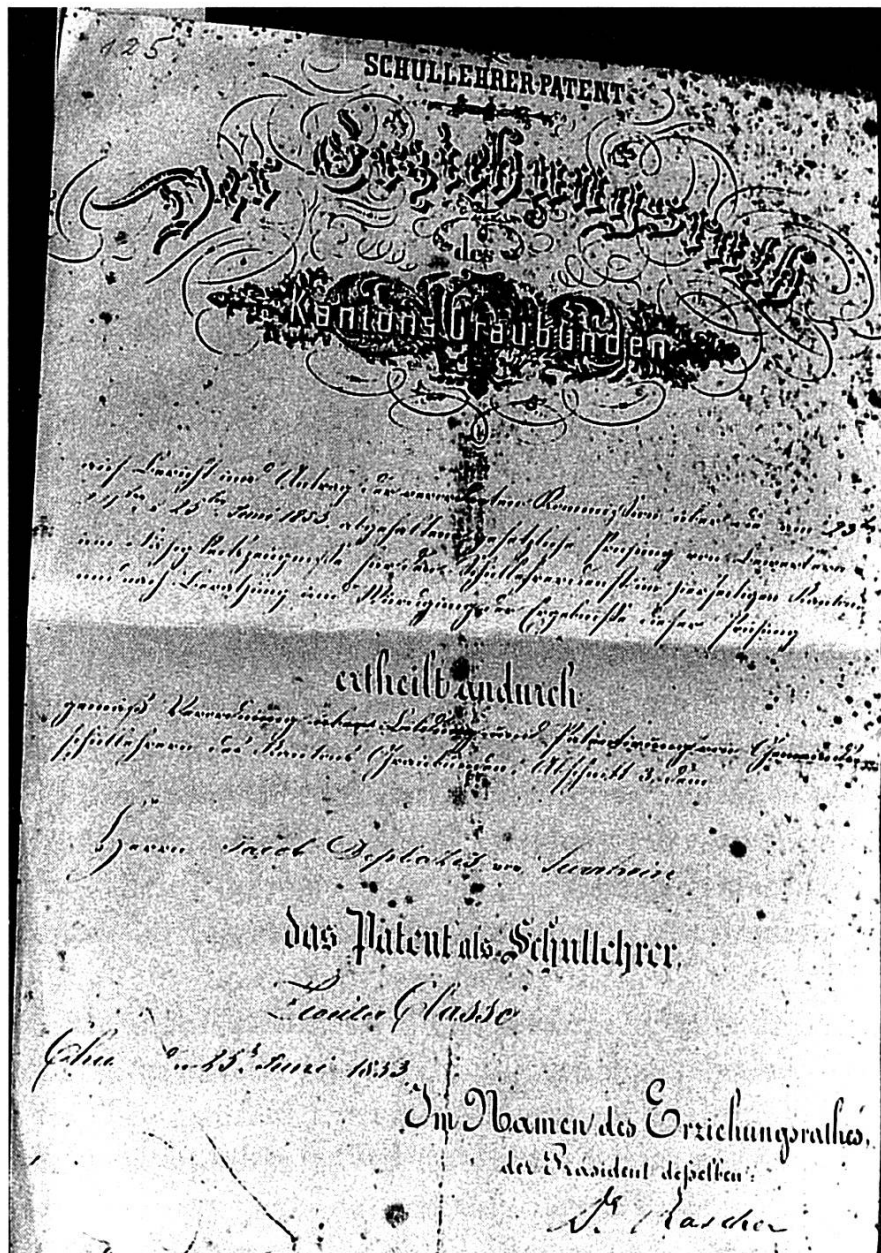 125
SCHULLEHRER-PATENT
Der Erziehungsrath
des
Kantons Graubünden
auf Bericht und Antrag der verordneten Kommission über die am 23ten
24ten & 25ten Juni 1853 abgehaltene gesetzliche Prüfung von Bewerbern
um Fähigkeitszeugnisse für den Schullehrerdienst im hierseitigen Kanton
und nach Berathung und Würdigung der Ergebnisse dieser Prüfung
ertheilt andurch
gemäß Verordnung über Bildung und Patentirung von Gemeinds-
schullehrern des Kantons Graubünden, Abschnitt 3, dem
Herrn Jacob Deplazes von Surrhein
das Patent als Schullehrer,
Zweiter Classe
Chur den 25t Juni 1853
Im Namen des Erziehungsrathes,
der Präsident deßelben:
Dr Rascher